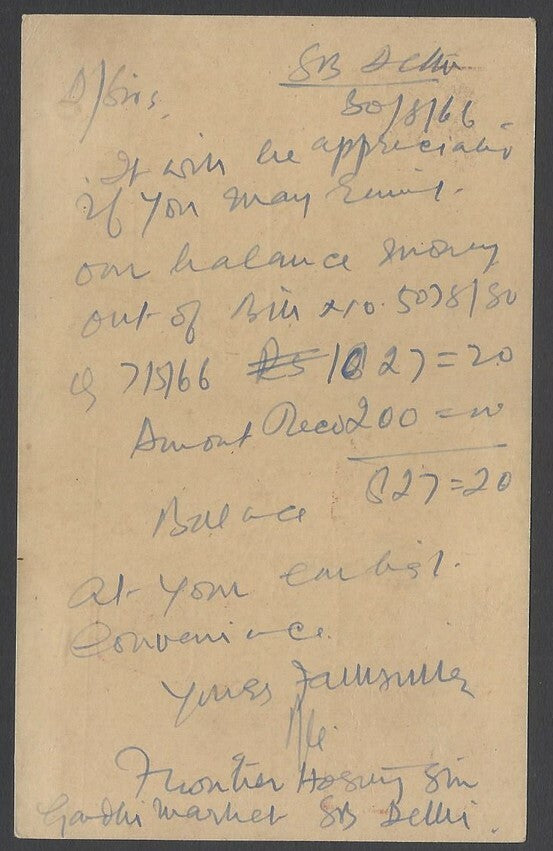 SB Delhi
D/Sirs,
30/8/66
It will be appreciated
if you may remit
our balance money
out of Bill No. 5078/80
of 7/5/66 Rs 1027=20
Amount Recd 200=00
827=20
Balance
at your earliest
Convenience.
Yours Faithfully
Frontier Hosiery
Gandhi Market SB Delhi.